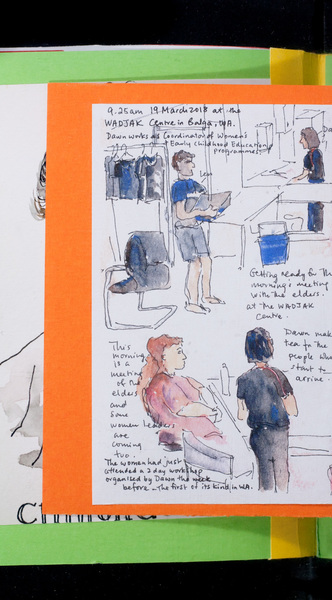 9.25am 19 March 2018 at the
WADJAK Centre in Balga, WA.
Dawn works as Coordinator of Women's
Early Childhood Educational
programmes.
Levi
Getting ready for Th
morning's meeting
with the elders.
at the WADJAK
Centre.
This
morning
is a
meeting
of the
elders
and
some
women leaders
are
coming
too.
Dawn mak
tea for the
people who
start to
arrive.
The women had just
attended a 2 day workshop
organised by Dawn the week
before - The first of its kind in WA.